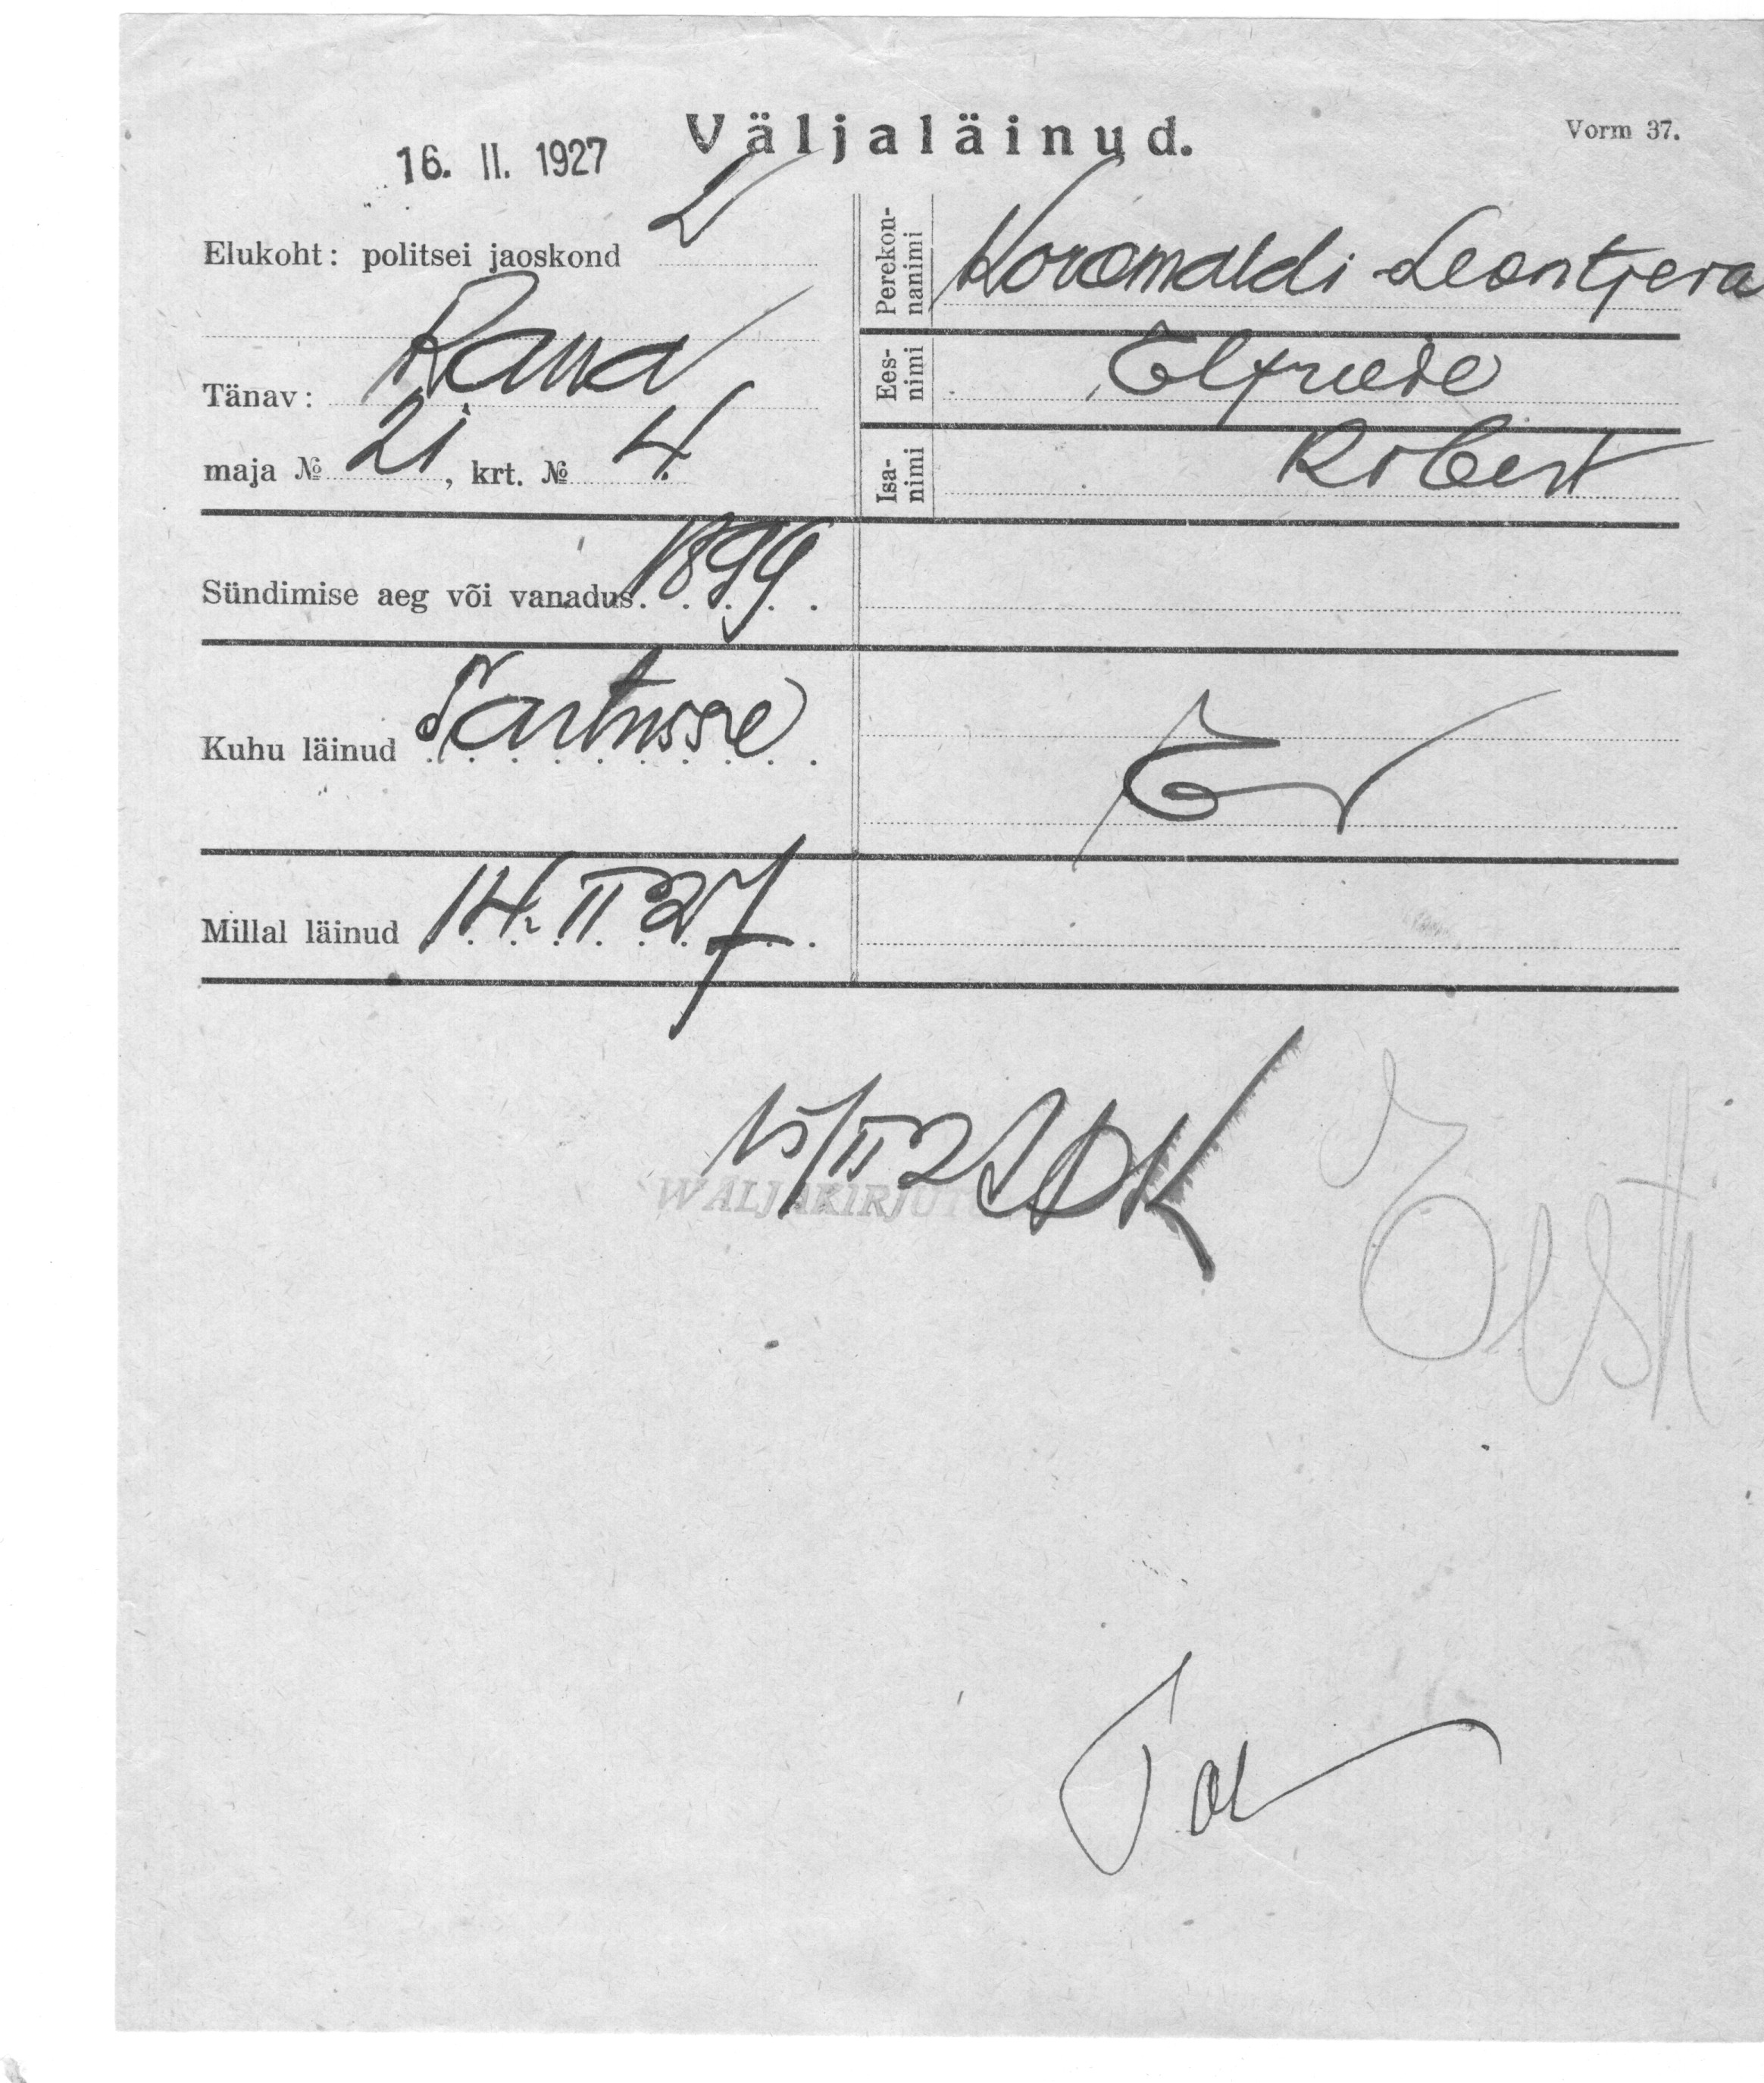 Väljaläinud.
Vorm 37.
16. II. 1927
Elukoht: politsei jaoskond 2
Tänav: Raua
maja № 21, krt. № 4
Perekonnanimi Koromaldi-Leontjeva
Eesnimi Elfriede
Isanimi Robert
Sündimise aeg või vanadus 1899
Kuhu läinud Tartusse
Millal läinud 14. II 27
15/II 27
WÄLJAKIRJUT
Eesti